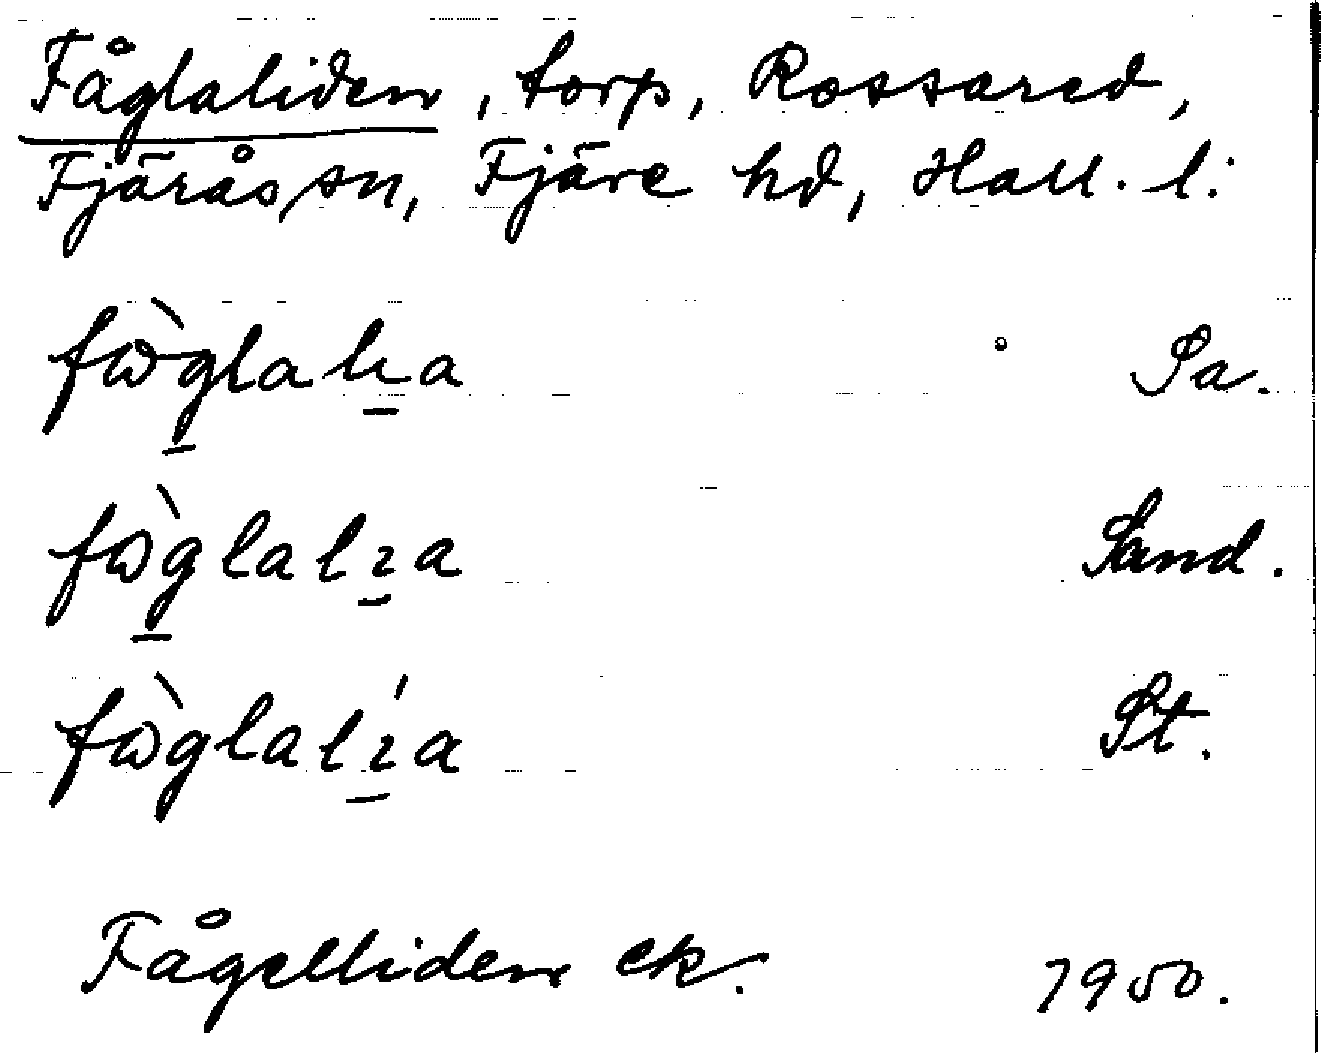 Fåglaliden, torp, Rossared,
Fjärås sn, Fjäre hd, Hall. l.
fὼglalıa Sa.
fὼglalıa Sand.
fὼglalı́a St.
Fågelliden ek. 1950.